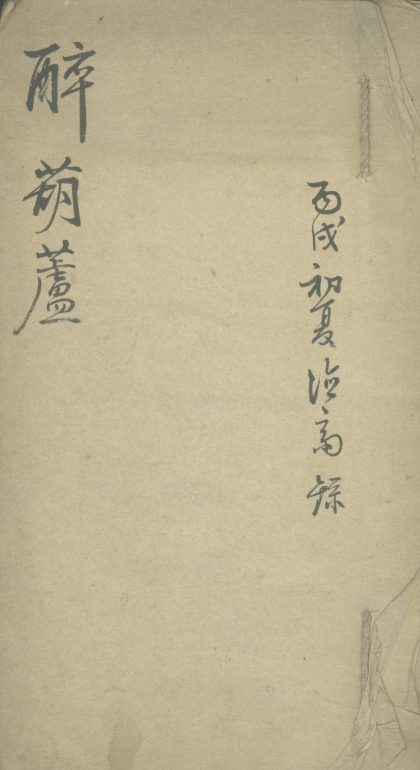 丙戌初夏浩齋錄
醉葫蘆